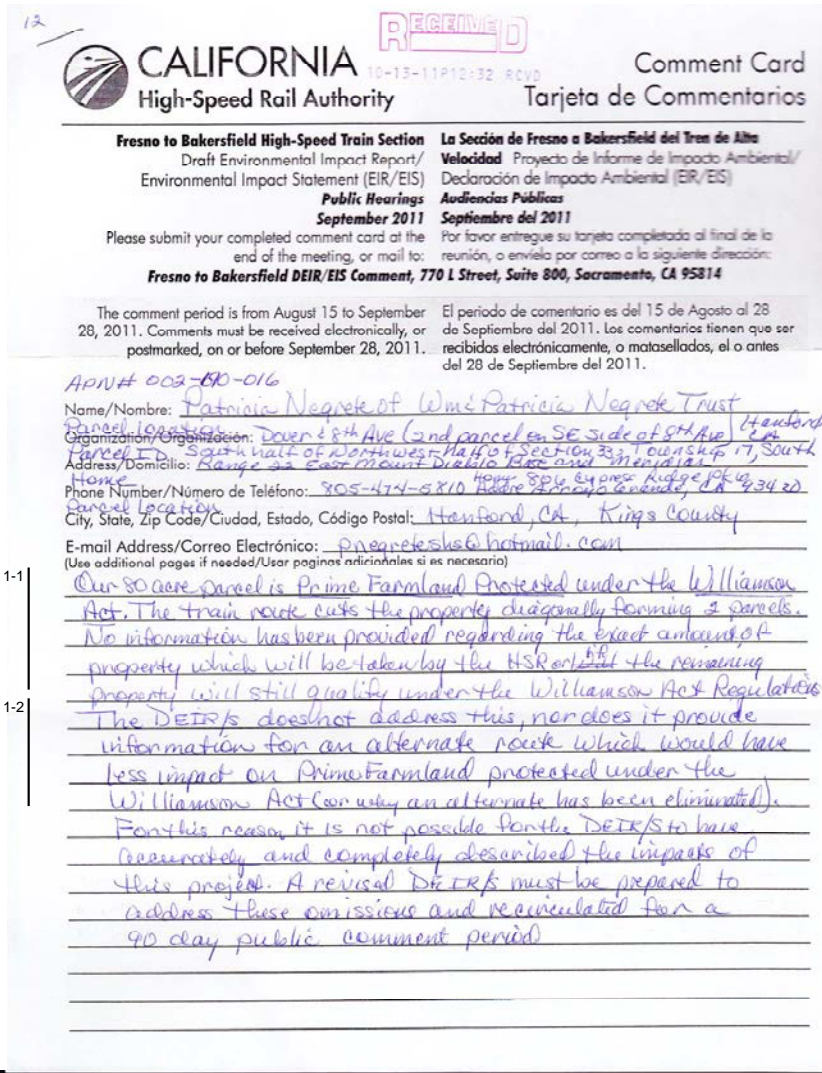 12
RECEIVED
10-13-11P12:32 RCVD
CALIFORNIA
High-Speed Rail Authority
Comment Card
Tarjeta de Commentarios
Fresno to Bakersfield High-Speed Train Section
Draft Environmental Impact Report/
Environmental Impact Statement (EIR/EIS)
Public Hearings
September 2011
Please submit your completed comment card at the
end of the meeting, or mail to:
La Sección de Fresno a Bakersfield del Tren de Alta
Velocidad Proyecto de Informe de Impacto Ambiental/
Declaración de Impacto Ambiental (EIR/EIS)
Audiencias Públicas
Septiembre del 2011
Por favor entregue su tarjeta completada al final de la
reunión, o envíela por correo a la siguiente dirección:
Fresno to Bakersfield DEIR/EIS Comment, 770 L Street, Suite 800, Sacramento, CA 95814
The comment period is from August 15 to September
28, 2011. Comments must be received electronically, or
postmarked, on or before September 28, 2011.
El periodo de comentario es del 15 de Agosto al 28
de Septiembre del 2011. Los comentarios tienen que ser
recibidos electrónicamente, o matasellados, el o antes
del 28 de Septiembre del 2011.
APN# 002-190-016
Name/Nombre: Patricia Negrete of Wm & Patricia Negrete Trust
Parcel Location
Organization/Organización: Dover & 8th Ave (2nd parcel on SE side of 8th Ave) Hanford CA
Parcel ID South half of Northwest half of Section 33, Township 17, South
Address/Domicilio: Range 22 East Mount Diablo Base and Meridian
Home
Phone Number/Número de Teléfono: 805-474-5810 Cypress Ridge Pkwy Arroyo Grande, CA 93420
Parcel Location
City, State, Zip Code/Ciudad, Estado, Código Postal: Hanford, CA, Kings County
E-mail Address/Correo Electrónico: pnegreteshs@hotmail.com
(Use additional pages if needed/Usar paginas adicionales si es necesario)
1-1
Our 80 acre parcel is Prime Farmland Protected under the Williamson
Act. The train route cuts the property diagonally forming 2 parcels.
No information has been provided regarding the exact amount of
property which will be taken by the HSR or if the remaining
property will still qualify under the Williamson Act Regulations
1-2
The DEIR/S does not address this, nor does it provide
information for an alternate route which would have
less impact on Prime Farmland protected under the
Williamson Act (or why an alternate has been eliminated).
For this reason it is not possible for the DEIR/S to have
accurately and completely described the impacts of
this project. A revised DEIR/S must be prepared to
address these omissions and recirculated for a
90 day public comment period